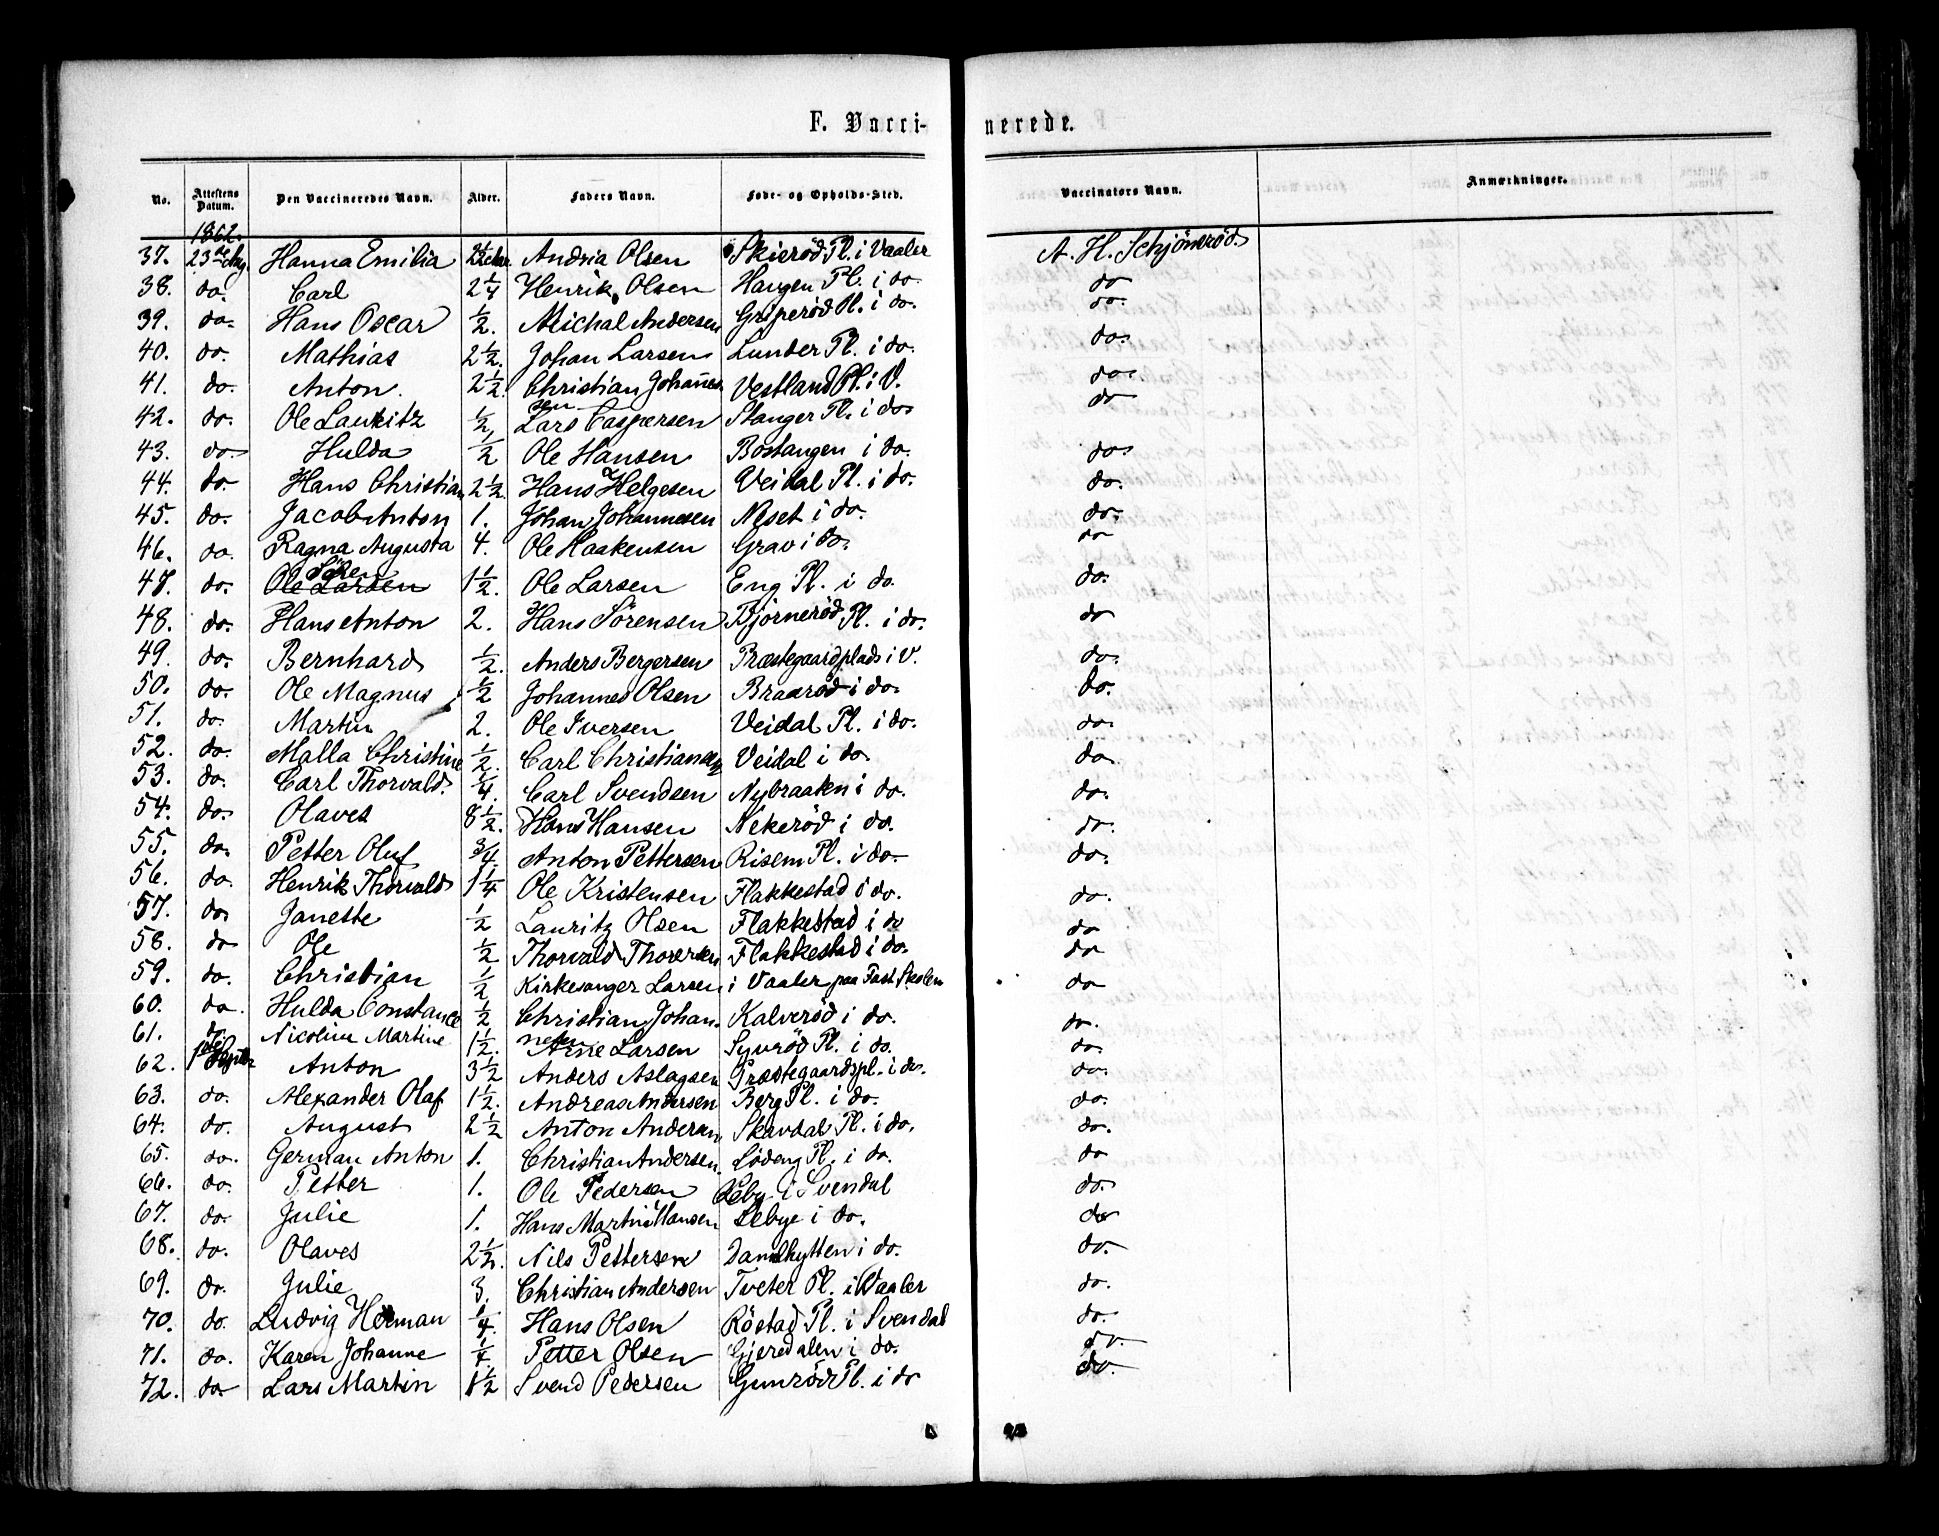 F. Vacci-nerede.
No. Attestens Datum. Den Vaccineredes Navn. Alder. Faders Navn. Føde- og Opholds-Sted. Vaccinators Navn. Anmærkninger.
1862.
37. 23de Aug Hanna Emilia 2½ Aar Andria Olsen Skieröd Pl. i Vaaler A. H. Schjöneröd
38. do. Carl 2¼ Henrik Olsen Haugen Pl. i do. do
39. do. Hans Oscar ½. Michal Andersen Griperöd Pl. i do. do.
40. do. Mathias 2½. Johan Larsen Lunder Pl. i do. do.
41. do. Anton. 2½. Christian Johannes sen Vestland Pl. i V. do.
42. do. Ole Lauritz ½ Lars Caspersen Stanger Pl. i do do
43. do Hulda ½ Ole Hansen Bostangen i do. do.
44. do. Hans Christian 2½. Hans Helgesen Veidal Pl. i do. do.
45. do. Jacob Anton 1. Johan Johannesen Neset i do. do.
46. do. Ragna Augusta 4. Ole Haakensen Grav i do. do
47. do. Ole Larsen Sören 1½. Ole Larsen Eng Pl. i do. do.
48. do. Hans Anton 2. Hans Sörensen Bjorneröd Pl. i do. do
49. do. Bernhard ½. Anders Bergersen Præstegaardplads i V. do.
50. do. Ole Magnus ½ Johannes Olsen Braaröd i do. do.
51. do. Martin 2. Ole Iversen Veidal Pl. i do. do.
52. do. Malla Christine ½. Carl Christiansen Veidal i do. do.
53. do. Carl Thorvald. ¼. Carl Svendsen Nybraaten i do. do.
54. do. Olaves 8½. Hans Hansen Nekeröd i do. do.
55. do. Petter Oluf ¾. Anton Pettersen Risem Pl. i do. do.
56. do. Henrik Thorvald 1¼ Ole Kristensen Flakkestad i do. do.
57. do Janette ½ Lauritz Olsen Flakkestad i do do
58. do Ole ½ Thorvald Thorersen Flakkestad i do. do
59. do. Christian ½ Kirkesanger Larsen i Vaaler paa Fast Skolen do
60. do. Hulda Constance ½ Christian Johan. nesen Kalveröd i do. do.
61. do. Nicoline Martine 1½. Arne Larsen Syvröd Pl. i do. do.
62. 1ste Septbr Anton 3½ Anders Aslagsen Præstegaardspl. i do. do.
63. do. Alexander Olaf 1½. Andreas Andersen Berg Pl. i do. do.
64. do. August 2½ Anton Andersen Skavdal Pl. i do. do.
65. do. German Anton 1. Christian Andersen. Lödeng Pl. i do. do
66. do. Petter 1. Ole Pedersen Leby i Svendal do.
67. do. Julie 1. Hans Martin Hansen Lebye i do. do
68. do. Olaves 2½. Nils Pettersen Damhytten i do. do.
69. do. Julie 3. Christian Andersen Tveter Pl. i Vaaler do.
70. do. Ludvig Herman ¼. Hans Olsen Röstad Pl. i Svendal do.
71. do. Karen Johanne ¼. Petter Olsen Gjeredalen i do. do.
72. do Lars Martin 1½ Svend Pedersen Gunröd Pl. i do do.